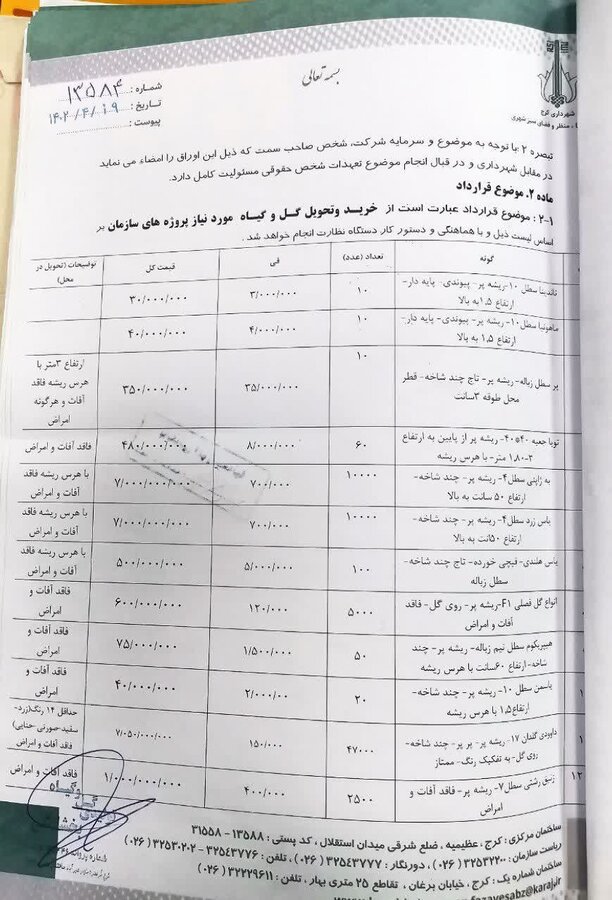 بسمه تعالی
شهرداری کرج
شماره: ۱۳۵۸۴
تاریخ: ۱۴۰۲/۴/۱۹
پیوست:
تبصره ۲: با توجه به موضوع و سرمایه شرکت، شخص صاحب سمت که ذیل این اوراق را امضاء می نماید
در مقابل شهرداری و در قبال انجام موضوع تعهدات شخص حقوقی مسئولیت کامل دارد.
ماده ۲. موضوع قرارداد
۲-۱: موضوع قرارداد عبارت است از خرید وتحویل گل و گیاه مورد نیاز پروژه های سازمان بر
اساس لیست ذیل و با هماهنگی و دستور کار دستگاه نظارت انجام خواهد شد.
گونه تعداد (عدد) فی قیمت کل توضیحات (تحویل در محل)
ناندینا سطل ۱۰- ریشه پر- پیوندی- پایه دار- ارتفاع ۱.۵ به بالا ۱۰ ۳/۰۰۰/۰۰۰ ۳۰/۰۰۰/۰۰۰
ماهونیا سطل ۱۰- ریشه پر- پیوندی- پایه دار- ارتفاع ۱.۵ به بالا ۱۰ ۴/۰۰۰/۰۰۰ ۴۰/۰۰۰/۰۰۰
پر سطل زباله- ریشه پر- تاج چند شاخه- قطر محل طوقه ۳سانت ۱۰ ۳۵/۰۰۰/۰۰۰ ۳۵۰/۰۰۰/۰۰۰ ارتفاع ۳متر با هرس ریشه فاقد آفات و هرگونه امراض
تویا جعبه ۴۰*۴۰- ریشه پر از پایین به ارتفاع ۲-۱.۸۰ متر- با هرس ریشه ۶۰ ۸/۰۰۰/۰۰۰ ۴۸۰/۰۰۰/۰۰۰ فاقد آفات و امراض
به ژاپنی سطل۴- ریشه پر- چند شاخه- ارتفاع ۵۰ سانت به بالا ۱۰۰۰۰ ۷۰۰/۰۰۰ ۷/۰۰۰/۰۰۰/۰۰۰ با هرس ریشه فاقد آفات و امراض
یاس زرد سطل۴- ریشه پر- چند شاخه- ارتفاع ۵۰انت به بالا ۱۰۰۰۰ ۷۰۰/۰۰۰ ۷/۰۰۰/۰۰۰/۰۰۰ با هرس ریشه فاقد آفات و امراض
یاس هلندی- قیچی خورده- تاج چند شاخه- سطل زباله ۱۰۰ ۵/۰۰۰/۰۰۰ ۵۰۰/۰۰۰/۰۰۰ با هرس ریشه فاقد آفات و امراض
انواع گل فصلی F1-ریشه پر- روی گل- فاقد آفات و امراض ۵۰۰۰ ۱۲۰/۰۰۰ ۶۰۰/۰۰۰/۰۰۰ فاقد آفات و امراض
هیپریکوم سطل نیم زباله- ریشه پر- چند شاخه- ارتفاع ۶۰سانت با هرس ریشه ۵۰ ۱/۵۰۰/۰۰۰ ۷۵/۰۰۰/۰۰۰ فاقد آفات و امراض
یاسمن سطل ۱۰- ریشه پر- چند شاخه- ارتفاع۱.۵ با هرس ریشه ۲۰ ۲/۰۰۰/۰۰۰ ۴۰/۰۰۰/۰۰۰ فاقد آفات و امراض
داوودی گلدان ۱۷- ریشه پر- پر پر- چند شاخه- روی گل- به تفکیک رنگ- ممتاز ۴۷۰۰۰ ۱۵۰/۰۰۰ ۷/۰۵۰/۰۰۰/۰۰۰ حداقل ۱۴ رنگ(زرد- سفید-صورتی-حنایی) فاقد آفات و امراض
زنبق رشتی سطل۷- ریشه پر- فاقد آفات و امراض ۲۵۰۰ ۴۰۰/۰۰۰ ۱/۰۰۰/۰۰۰/۰۰۰ فاقد آفات و امراض
ساختمان مرکزی: کرج، عظیمیه، ضلع شرقی میدان استقلال، کد پستی: ۱۳۵۸۸ - ۳۱۵۵۸
ریاست سازمان: ۳۲۵۳۲۲۰۰ (۰۲۶)، دورنگار: ۳۲۵۴۳۷۷۷ (۰۲۶)، تلفن: ۳۲۵۴۳۷۷۶ - ۳۲۵۳۰۲۰۲ (۰۲۶)
ساختمان شماره یک: کرج، خیابان برغان، تقاطع ۲۵ متری بهار، تلفن: ۳۲۲۲۹۶۱۱ (۰۲۶)